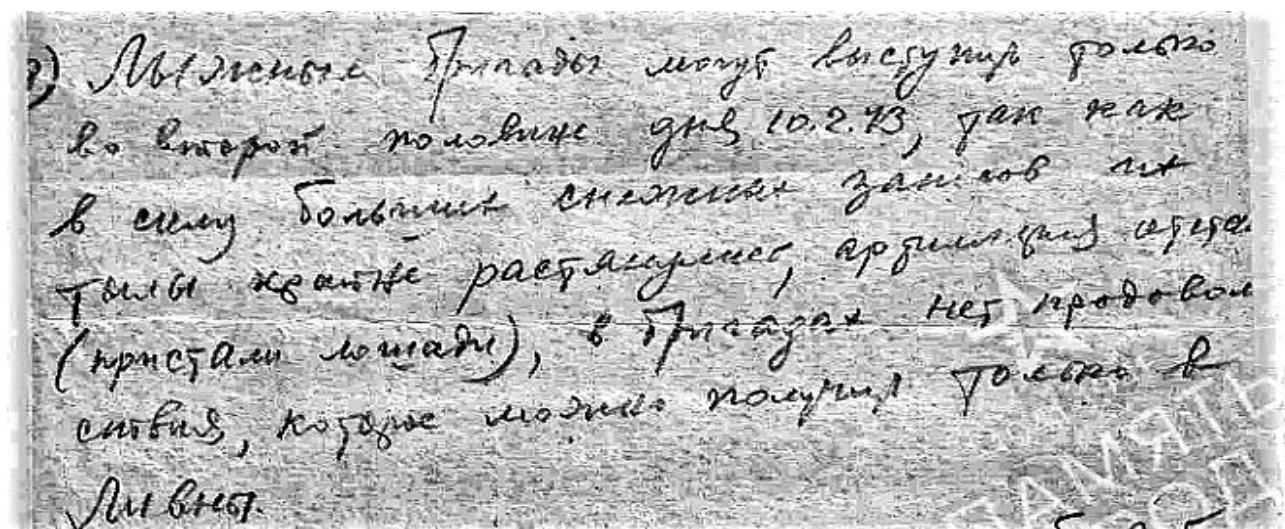 ) Лыжные бригады могут выступить только
во второй половине дня 10.2.43, так как
в силу больших снежных заносов их
тылы крайне растянулись, артиллерия отста-
(пристали лошади), в бригадах нет продоволь
ствия, которое можно получить только в
Ливны.
ПАМЯТЬ